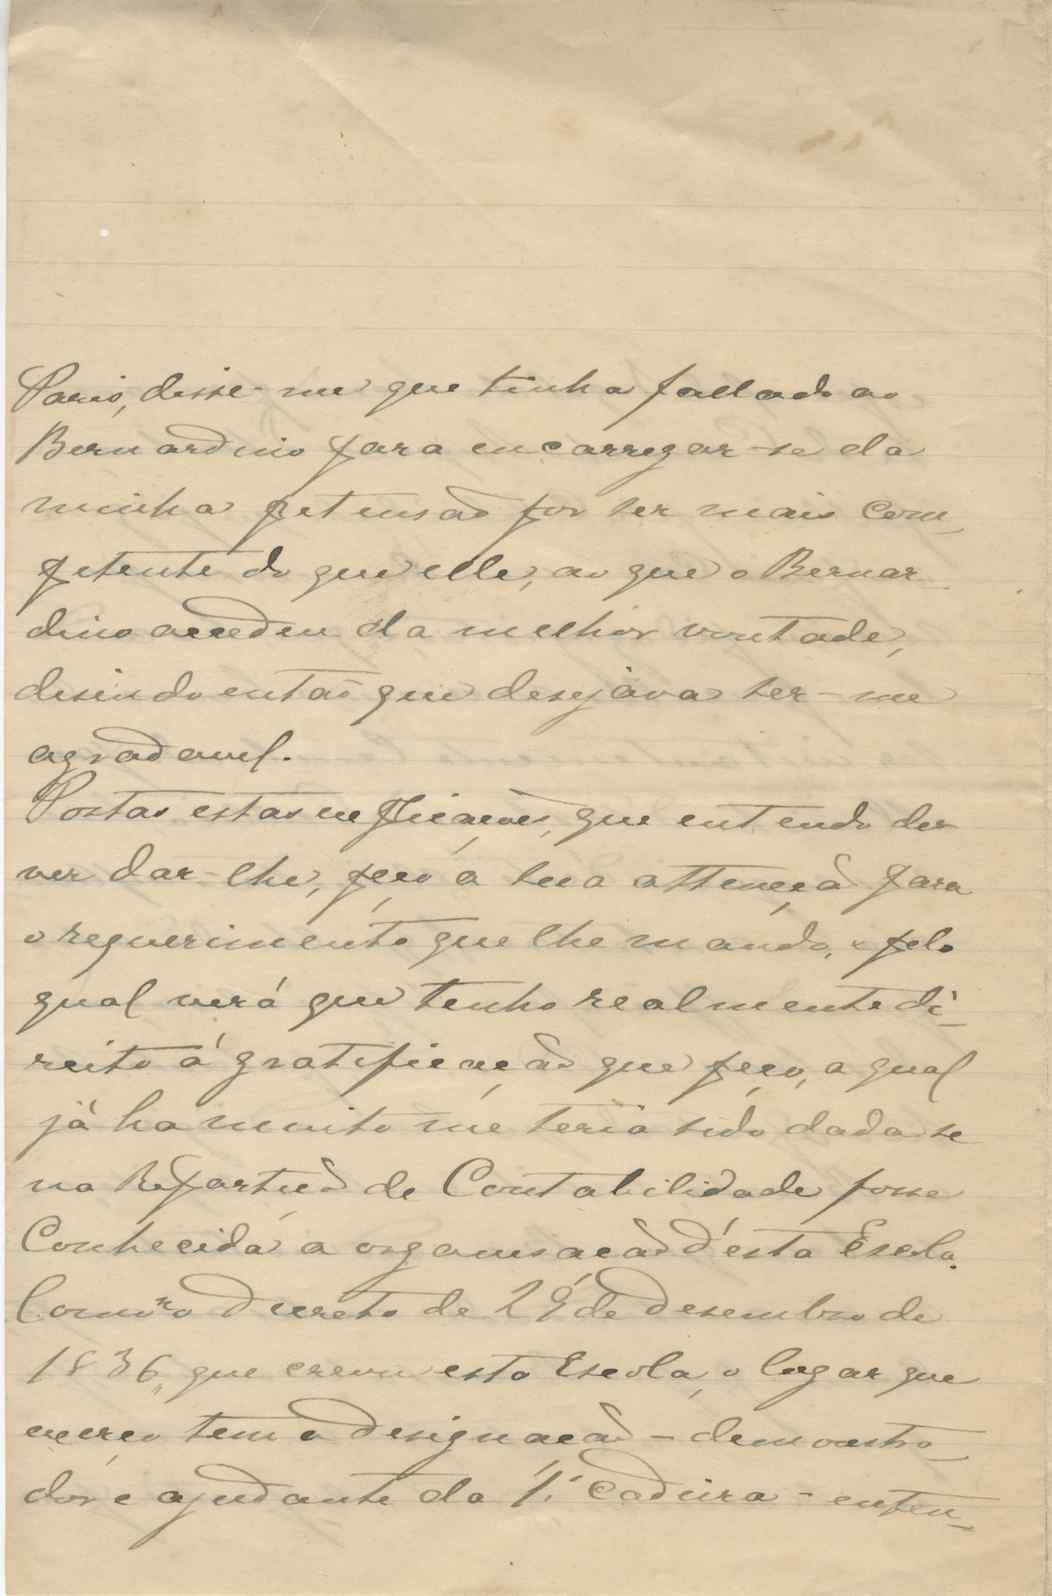 Paris, disse-me que tinha fallado ao
Bernardino para encarregar-se da
minha petensão por ser mais com-
petente do que elle, ao que o Bernar
dino accedeu da melhor vontade,
disindo então que desejava ser-me
agradavel.
Postas estas explicações, que entendo de-
ver dar-lhe, peço a sua attenção para
o requerimento que lhe mando, e pelo
qual verá que tenho realmente di-
reito á gratificação que peço, a qual
já ha muito me teria sido dada se
na Repartição de Contabilidade fosse
Conhecida a organisação d'esta Escola.
Como o Decreto de 29 de Desembro de
1836, que creou esta Escola, o logar que
exerço tem a designação - demonstra-
dor e ajudante da 1.ª Cadeira - enten-